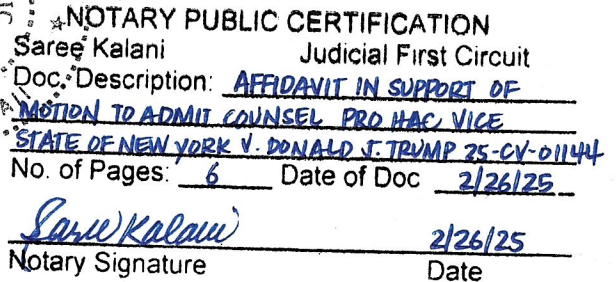 NOTARY PUBLIC CERTIFICATION
Saree Kalani Judicial First Circuit
Doc. Description: AFFIDAVIT IN SUPPORT OF
MOTION TO ADMIT COUNSEL PRO HAC VICE
STATE OF NEW YORK V. DONALD J. TRUMP 25-CV-01144
No. of Pages: 6 Date of Doc 2/26/25
Saree Kalani 2/26/25
Notary Signature Date